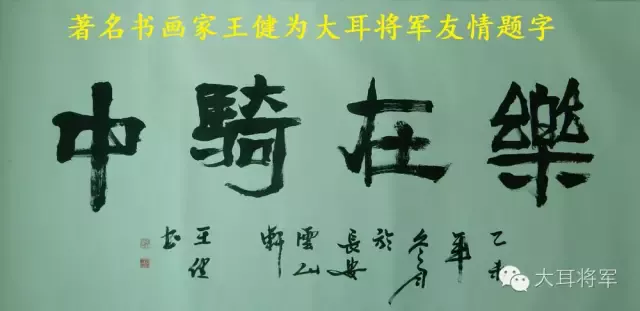 著名书画家王健为大耳将军友情题字
樂在騎中
乙未
年
冬月
於
長安
雲山
軒
王健
书
大耳将军